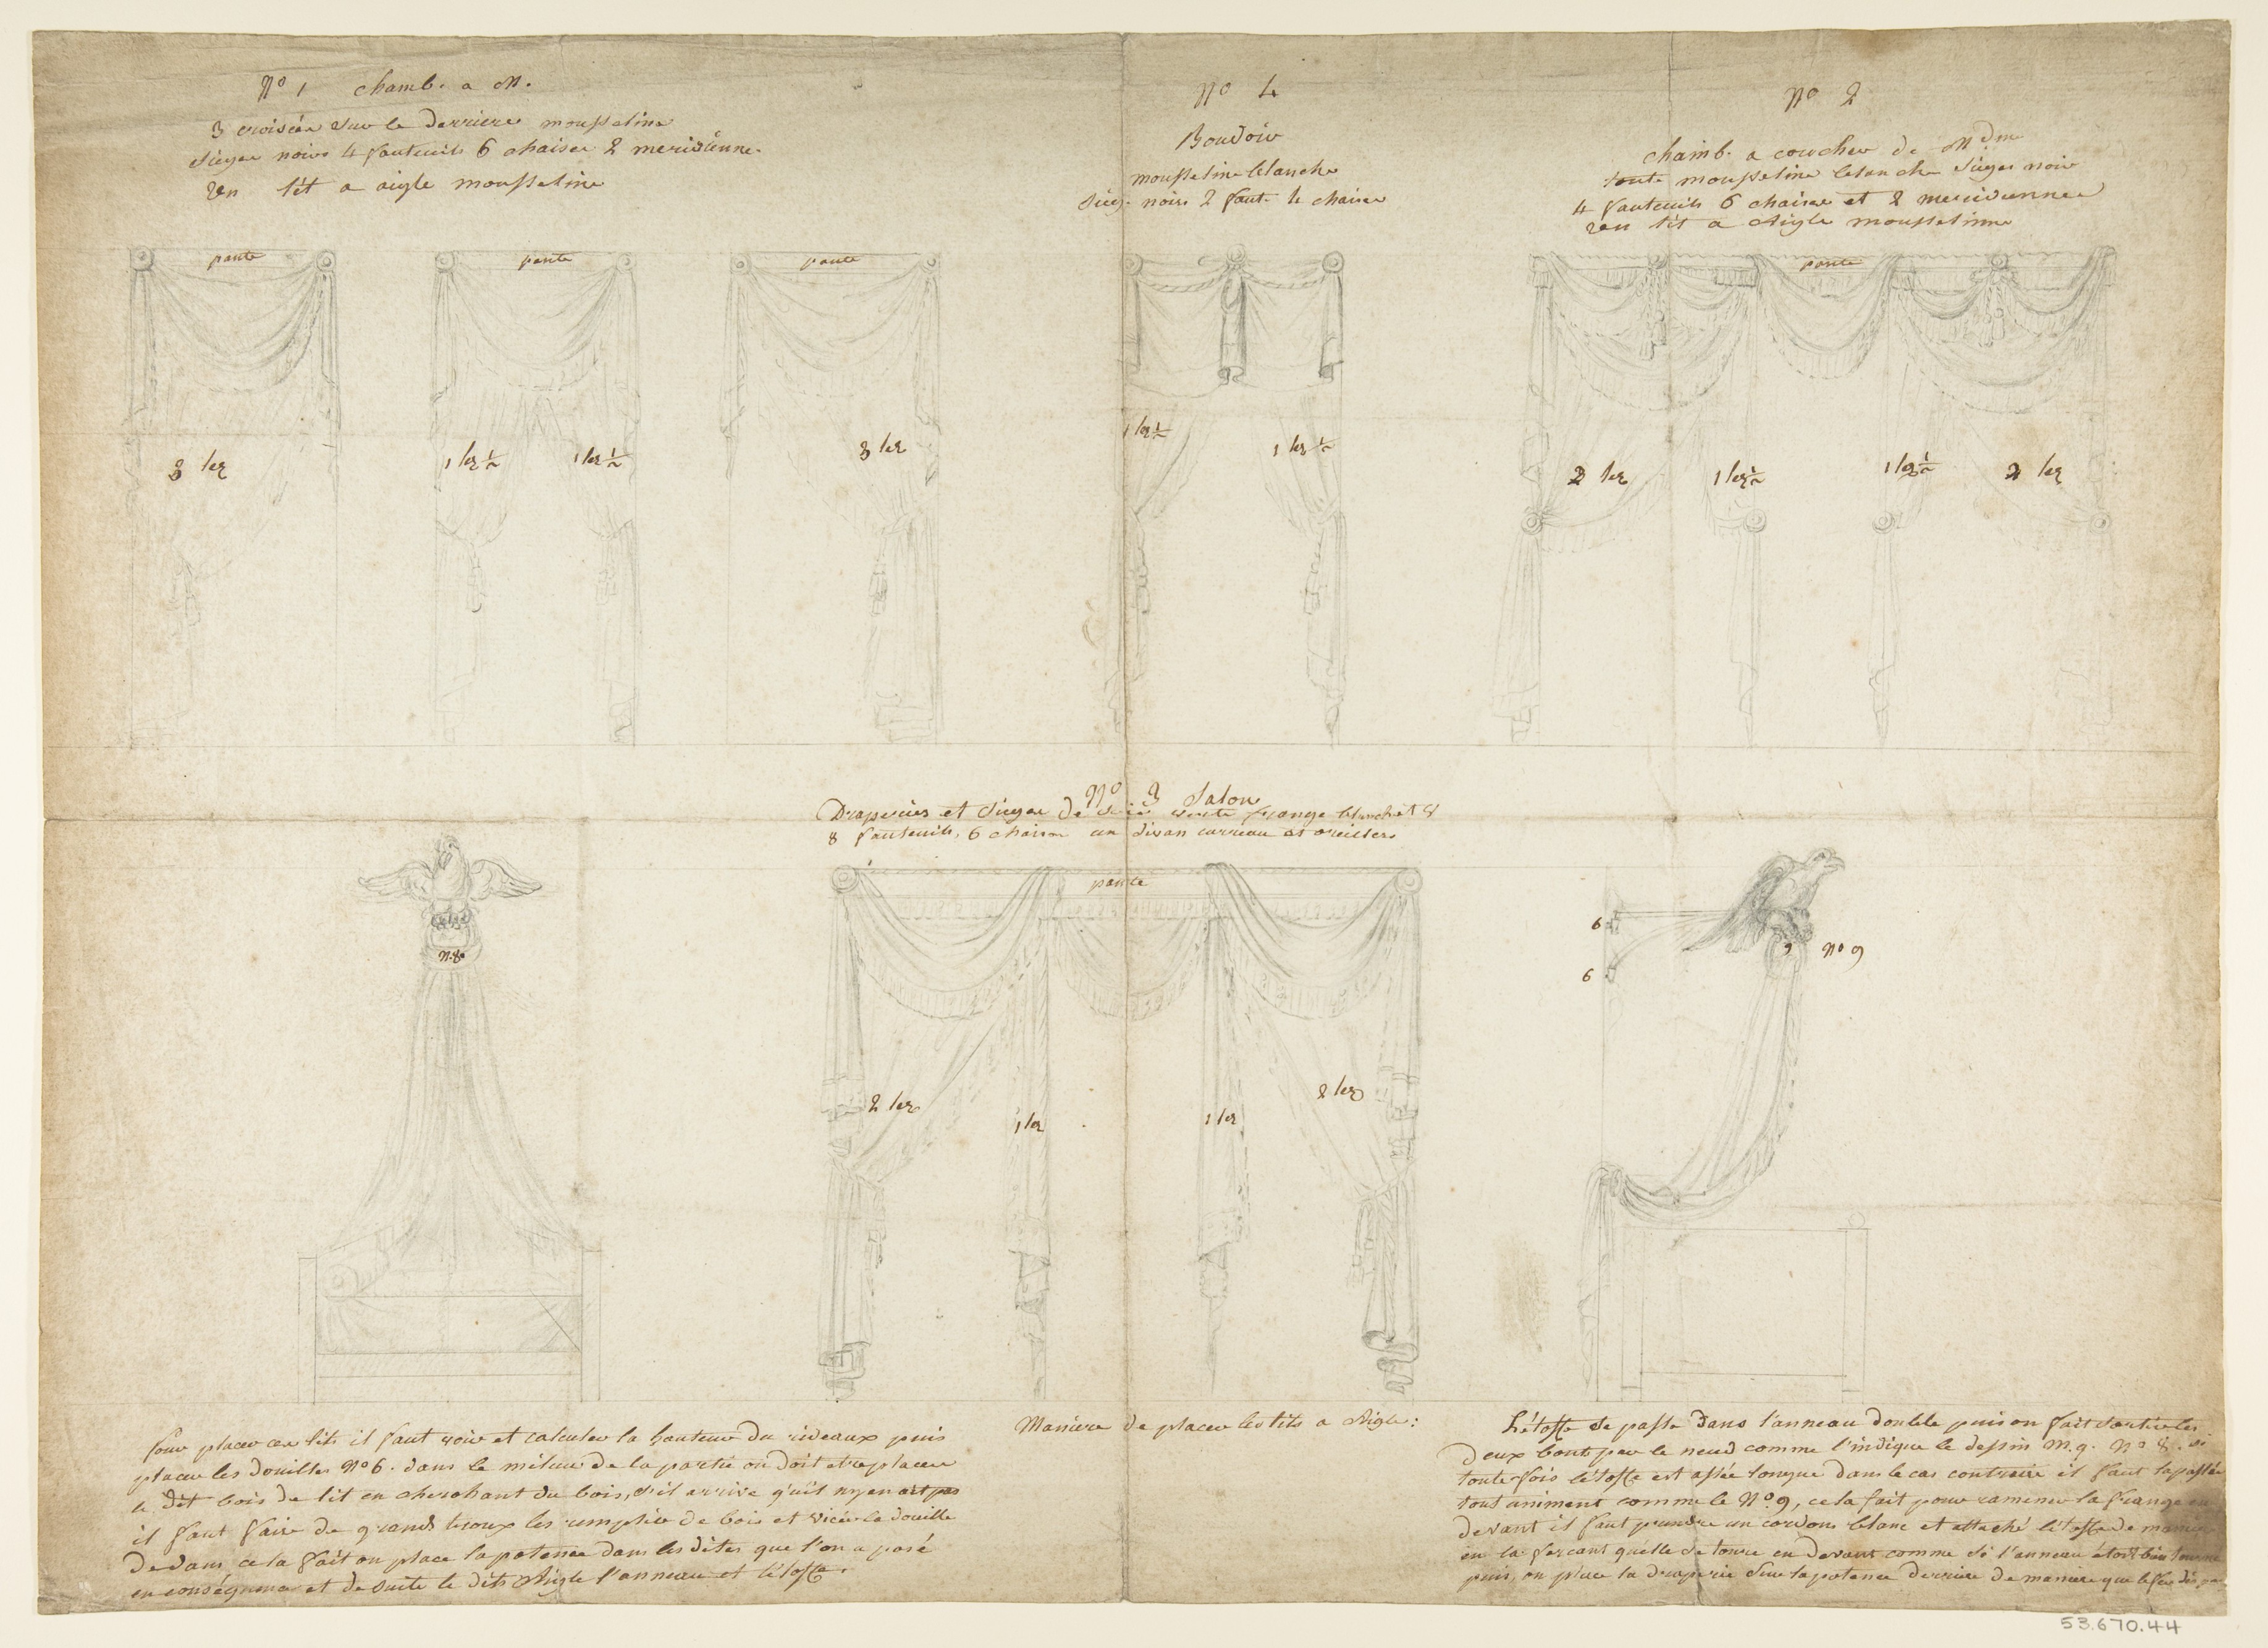 No 1 chamb. a M.
3 croisées sur le derriere mousseline
Sieges noirs 4 fauteuils 6 chaises 2 meridienne.
un lit a aigle mousseline
No 4
Boudoir
mousseline blanche
Sieg. noirs 2 faut. 4 chaises
No 2
chamb. a coucher de Mdme
toute mousseline blanche Sieges noir
4 fauteuils 6 chaises et 2 meridiennes
un lit a Aigle mousseline
pante
pante
pante
pante
3 lez
1 lez ½
1 lez ½
3 lez
1 lez ½
1 lez ½
2 lez
1 lez ½
1 lez ½
2 lez
No 3 Salon
Draperies et Sieges de Soie verte frange blanche et
8 fauteuils, 6 chaises un divan carreau et oreillers
pante
N.8
6
6
9
No 9
2 lez
1 lez
1 lez
2 lez
Pour placer ces lits il faut voir et calculer la hauteur du rideaux puis
placer les douilles No 6. dans le milieu de la partie ou doit etre placer
le dit bois de lit en cherchant du bois, s'il arrive qu'il n'y en ait pas
il faut faire de grands troux les remplir de bois et vicer la douille
dedans, cela fait on place la potence dans les dites que l'on a posé
en conséquence et de suite le dits Aigle l'anneau et l'étoffe.
Maniere de placer les lits a Aigle:
L'étoffe se passe dans l'anneau double puis on fait sortir les
deux bouts par le neud comme l'indique le dessin M.9. No 8. si
toute fois l'étoffe est assée longue dans le cas contraire il faut la passée
tout uniment comme le No 9, cela fait pour ramener la frange en
devant il faut prendre un cordons blanc et attaché l'étoffe de manie
en la forcant qu'elle se tourne en devant comme si l'anneau étoit bien tourné
puis, on place la draperie sur la potence derriere de maniere que le
53.670.44